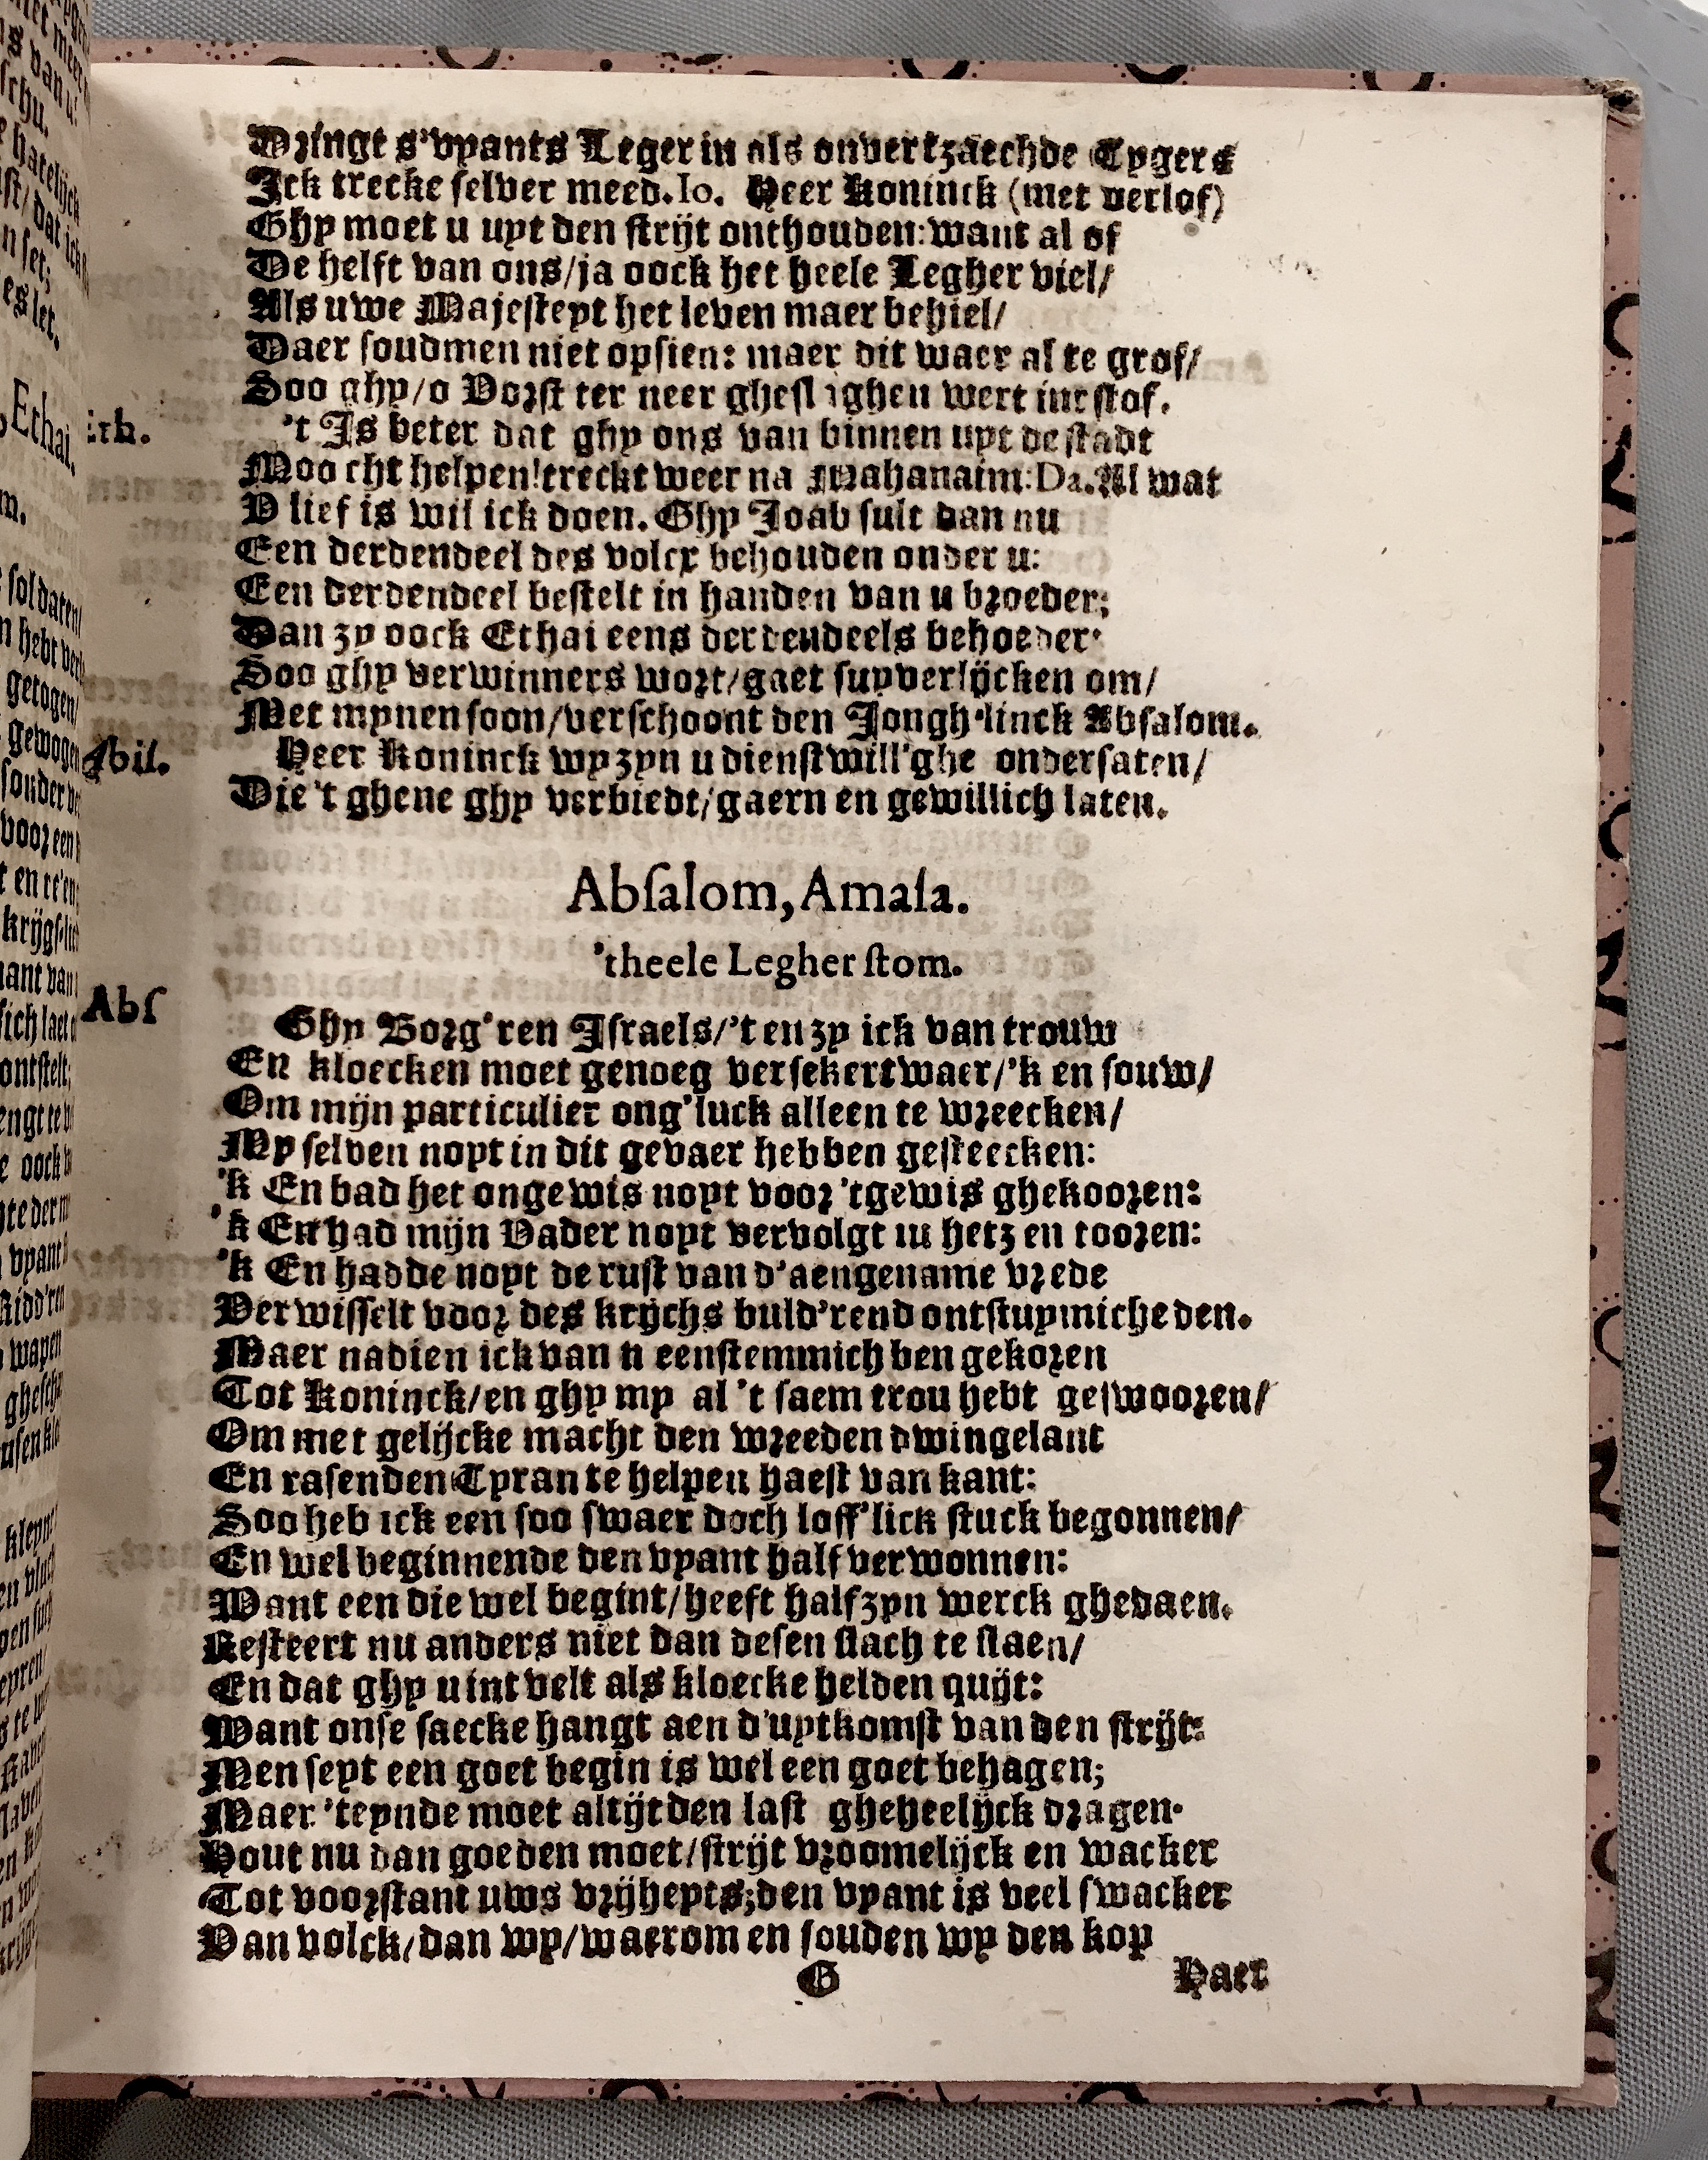 Dringt s'vyants Leger in als onvertzaechde Tygers
Ick trecke selver meed. Io. Heer Koninck (met verlof)
Ghy moet u uyt den strijt onthouden: want al of
De helft van ons/ja oock het heele Legher viel/
Als uwe Majesteyt het leven maer behiel/
Daer soudmen niet opsien: maer dit waer al te grof/
Soo ghy/o Vorst ter neer gheslaghen wert int stof.
'rk. 't Is beter dat ghy ons van binnen uyt de stadt
Moocht helpen! treckt weer na Mahanaim: Da. Al wat
V lief is wil ick doen. Ghy Joab sult dan nu
Een derdendeel des volcx behouden onder u:
Een derdendeel bestelt in handen van u broeder;
Dan zy oock Ethai eens derdendeels behoeder.
Soo ghy verwinners wort/gaet suyverlijcken om/
Met mynen soon/verschoont den Jongh'linck Absalom.
Abil. Heer Koninck wy zyn u dienstwill'ghe ondersaten/
Die 't ghene ghy verbiedt/gaern en gewillich laten.
Absalom, Amasa.
'theele Legher stom.
Abs Ghy Borg'ren Israels/'t en zy ick van trouw
En kloecken moet genoeg versekert waer/'k en souw/
Om mijn particulier ong'luck alleen te wreecken/
My selven noyt in dit gevaer hebben gesteecken:
'k En had het ongewis noyt voor 'tgewis ghekooren:
'k En had mijn Vader noyt vervolgt in hetz en tooren:
'k En hadde noyt de rust van d'aengename vrede
Verwisselt voor des krijchs buld'rend ontstuymicheden.
Maer nadien ick van u eenstemmich ben gekoren
Tot Koninck/en ghy my al 't saem trou hebt geswooren/
Om met gelijcke macht den wreeden dwingelant
En rasenden Tyran te helpen haest van kant:
Soo heb ick een soo swaer doch loff'lick stuck begonnen/
En wel beginnende den vyant half verwonnen:
Want een die wel begint/heeft half zyn werck ghedaen.
Resteert nu anders niet dan desen slach te slaen/
En dat ghy u int velt als kloecke helden quijt:
Want onse saecke hangt aen d'uytkomst van den strijt:
Men seyt een goet begin is wel een goet behagen;
Maer 'teynde moet altijt den last gheheelijck dragen.
Hout nu dan goeden moet/strijt vroomelijck en wacker
Tot voorstant uws vrijheyts; den vyant is veel swacker
Van volck/dan wy/waerom en souden wy den kop
G Haer